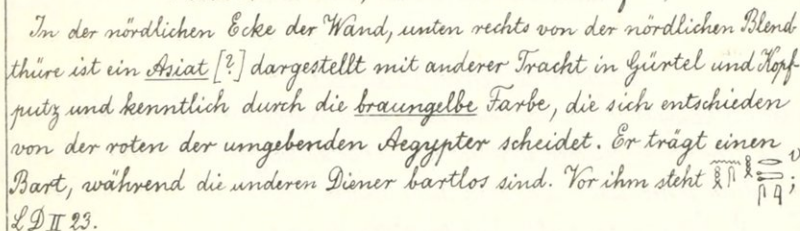 In der nördlichen Ecke der Wand, unten rechts von der nördlichen Blend-
thüre ist ein Asiat [?] dargestellt mit anderer Tracht in Gürtel und Kopf-
putz und kenntlich durch die braungelbe Farbe, die sich entschieden
von der roten der umgebenden Aegypter scheidet. Er trägt einen
Bart, während die anderen Diener bartlos sind. Vor ihm steht ;
LD II 23.